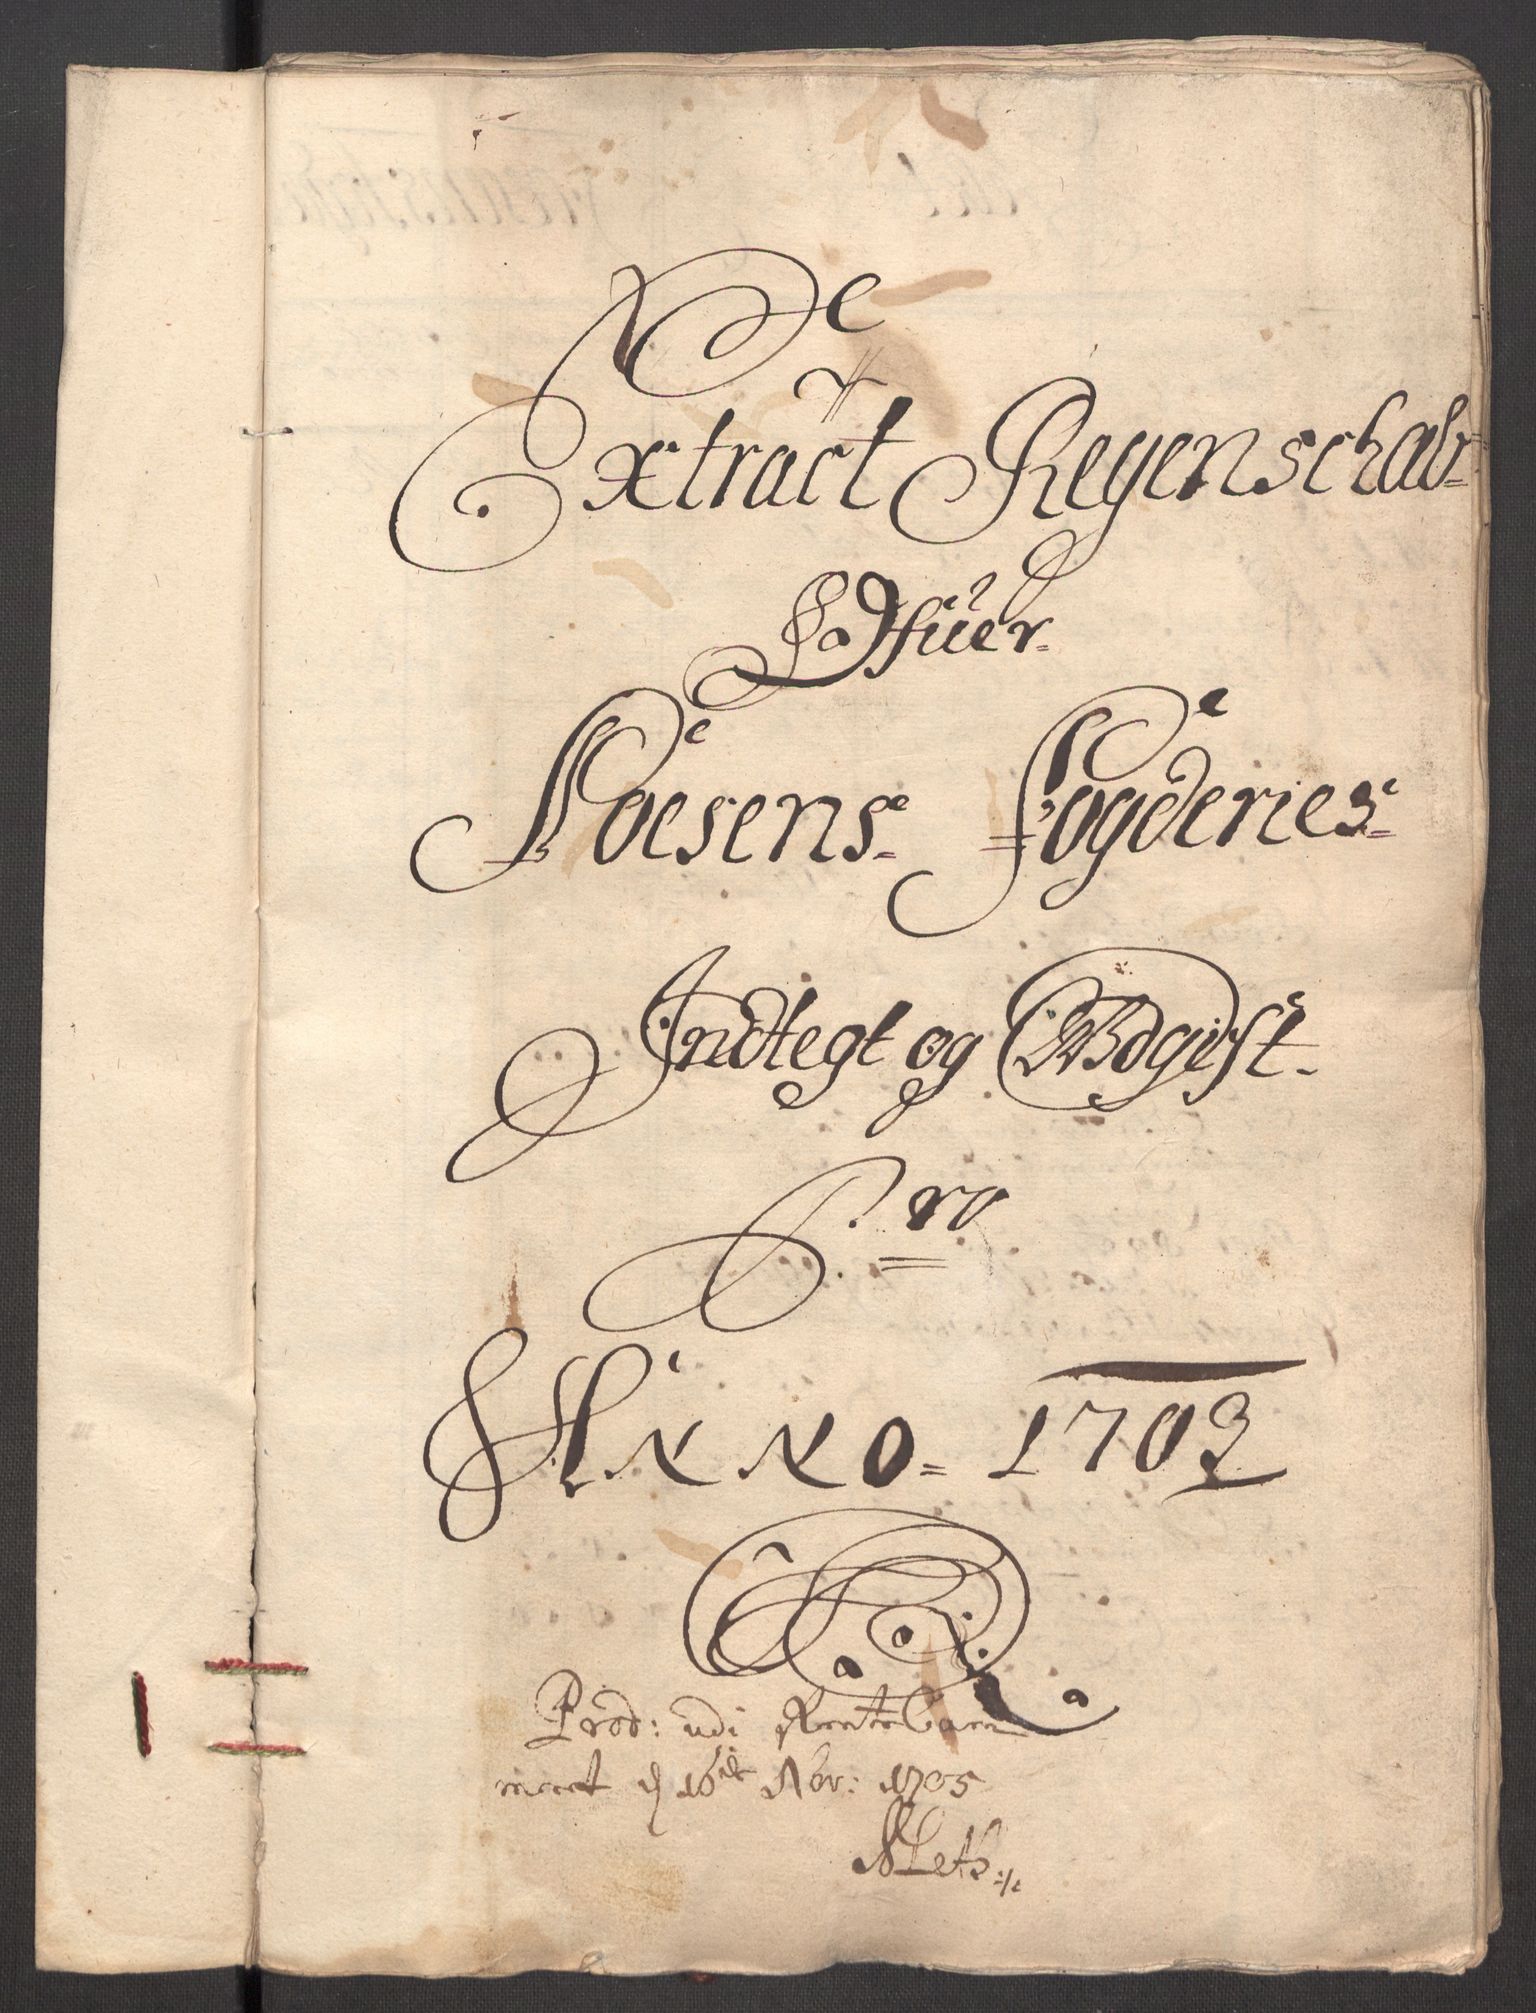 Extract Regenschab
Offuer
Foesens Fogderies
Indtegt og Wdgift
Pro
Anno 1703
Prod: udi Rente Cam
meret d 16de Nbr: 1705